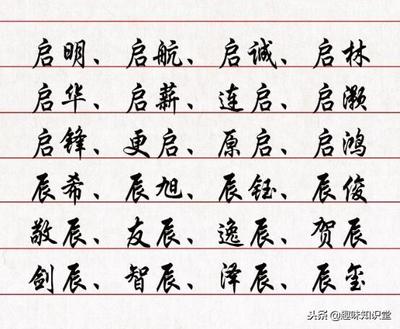 启明、启航、启诚、启林
启华、启薪、连启、启灏
启锋、更启、原启、启鸿
辰希、辰旭、辰钰、辰俊
敬辰、友辰、逸辰、贺辰
剑辰、智辰、泽辰、辰玺
头条 @趣味知识堂